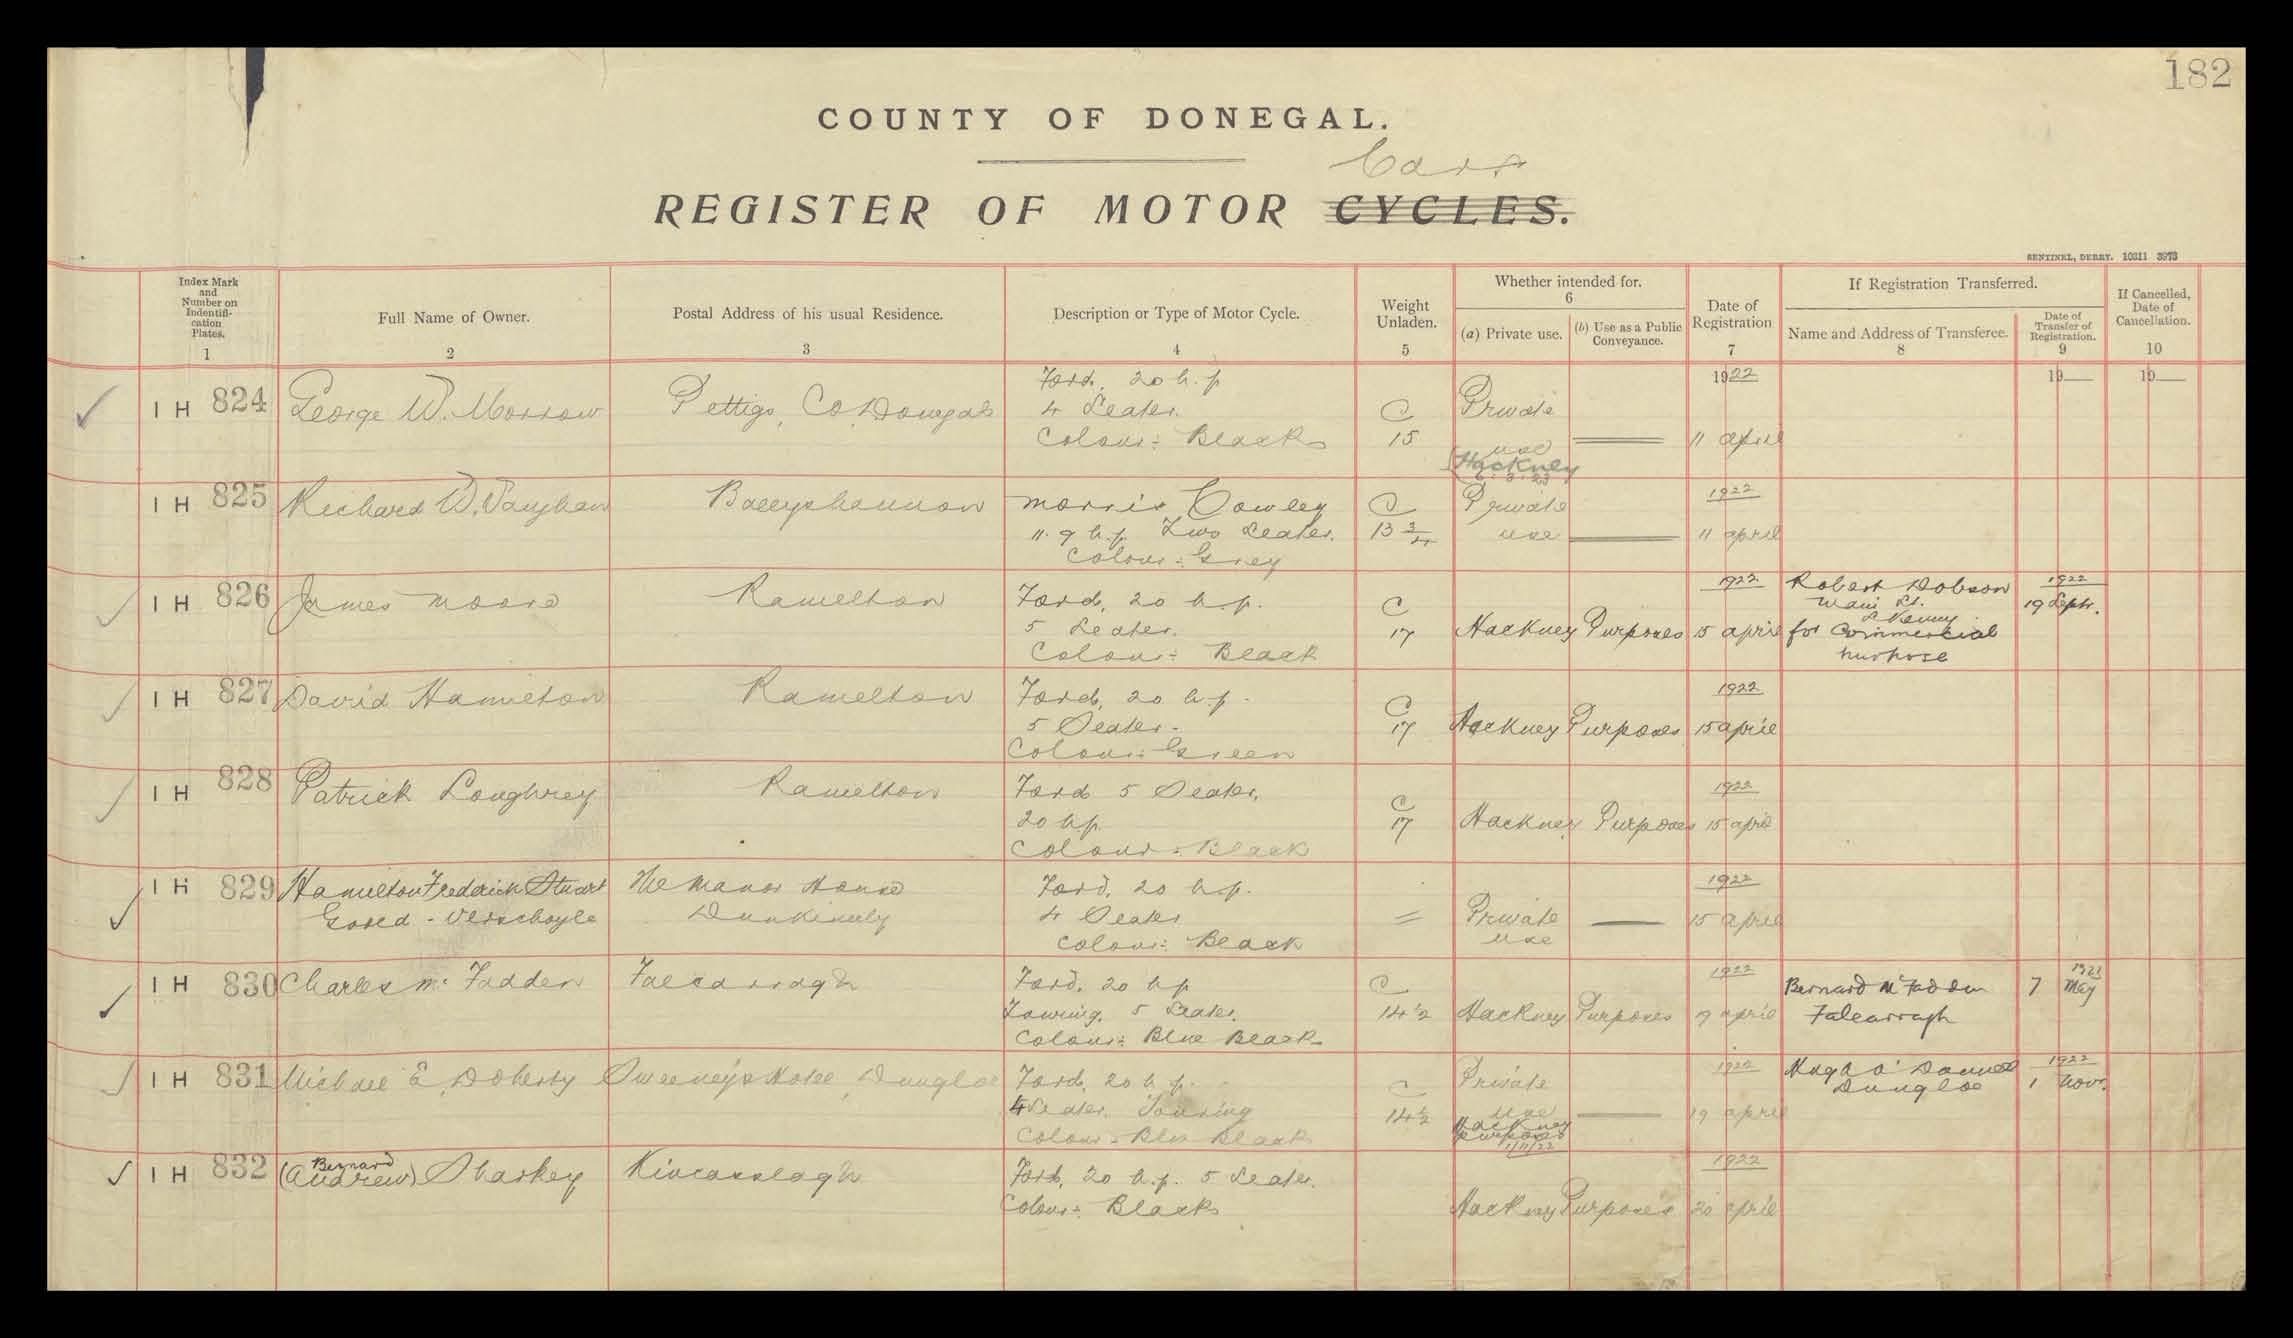 182
COUNTY OF DONEGAL.
Cars
REGISTER OF MOTOR CYCLES.
SENTINEL, DERRY. 10311 3973
Index Mark and Number on Indentifi-cation Plates. 1
Full Name of Owner. 2
Postal Address of his usual Residence. 3
Description or Type of Motor Cycle. 4
Weight Unladen. 5
Whether intended for. 6
(a) Private use.
(b) Use as a Public Conveyance.
Date of Registration 7
If Registration Transferred.
Name and Address of Transferee. 8
Date of Transfer of Registration. 9
If Cancelled, Date of Cancellation. 10
I H 824 George W. Morrow Pettigo, Co. Donegal
Ford, 20 h.p
4 Seater.
Colour: Black
C 15
Private use
(Hackney
1922
11 April
19
19
I H 825 Richard W. Vaughan Ballyshannon
Morris Cowley
11.9 h.p. Two Seater.
Colour: Grey
C 13 3/4
Private use
1922
11 April
I H 826 James Moore Ramelton
Ford, 20 h.p.
5 Seater.
Colour: Black
C 17
Hackney Purposes
1922
15 April
Robert Dobson
Main St.
L'Kenny
for Commercial
purpose
1922
19 Septr.
I H 827 David Hamilton Ramelton
Ford, 20 h.p.
5 Seater.
Colour: Green
C 17
Hackney Purposes
1922
15 April
I H 828 Patrick Loughrey Ramelton
Ford 5 Seater.
20 h.p.
Colour: Black
C 17
Hackney Purposes
1922
15 April
I H 829 Hamilton Frederick Stuart
Goold-Verschoyle
The Manor House
Dunkineely
Ford, 20 h.p.
4 Seater
Colour: Black
Private use
1922
15 April
I H 830 Charles Mc Fadden Falcarragh
Ford, 20 h p
Touring. 5 Seater.
Colour: Blue Black
C 14 1/2
Hackney Purposes
1922
19 April
Bernard McFadden
Falcarragh
1923
7 May
I H 831 Michael E. Doherty Sweeney's Hotel, Dungloe
Ford, 20 h.p.
4 Seater. Touring
Colour: Blue Black
C 14 1/2
Private use
Hackney
purposes
1/11/22
1922
19 April
Hugh O'Donnell
Dungloe
1922
1 Novr.
I H 832 Bernard
(Andrew) Sharkey Kincasslagh
Ford, 20 h.p. 5 Seater.
Colour: Black
Hackney Purposes
1922
20 April